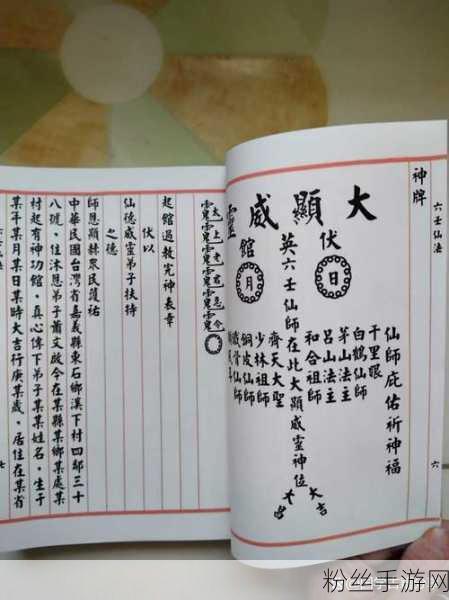 六壬仙法
六
神牌
大顯威靈
仙師庇佑祈神福
千里眼
白鶴仙師
茅山法主
呂山法主
和合祖師
伏
日
英六壬仙師在此大顯威靈神位
大吉
大昌
館
月
齊天大聖
少林祖師
銅皮仙師
骨仙師
太上老君急令
起館過教完神表章
伏以
仙德威靈弟子扶持
之德
師恩顯赫眾民護祐
中華民國台灣省嘉義縣東石鄉溪下村四鄰三十
八號。住沐恩弟子蕭文啟今在某縣某鄉某處某
村起有神功館。真心傳下弟子某某姓名。生于
某年某月某日某時大吉行庚某歲。居住在某省
七
粉丝手游网